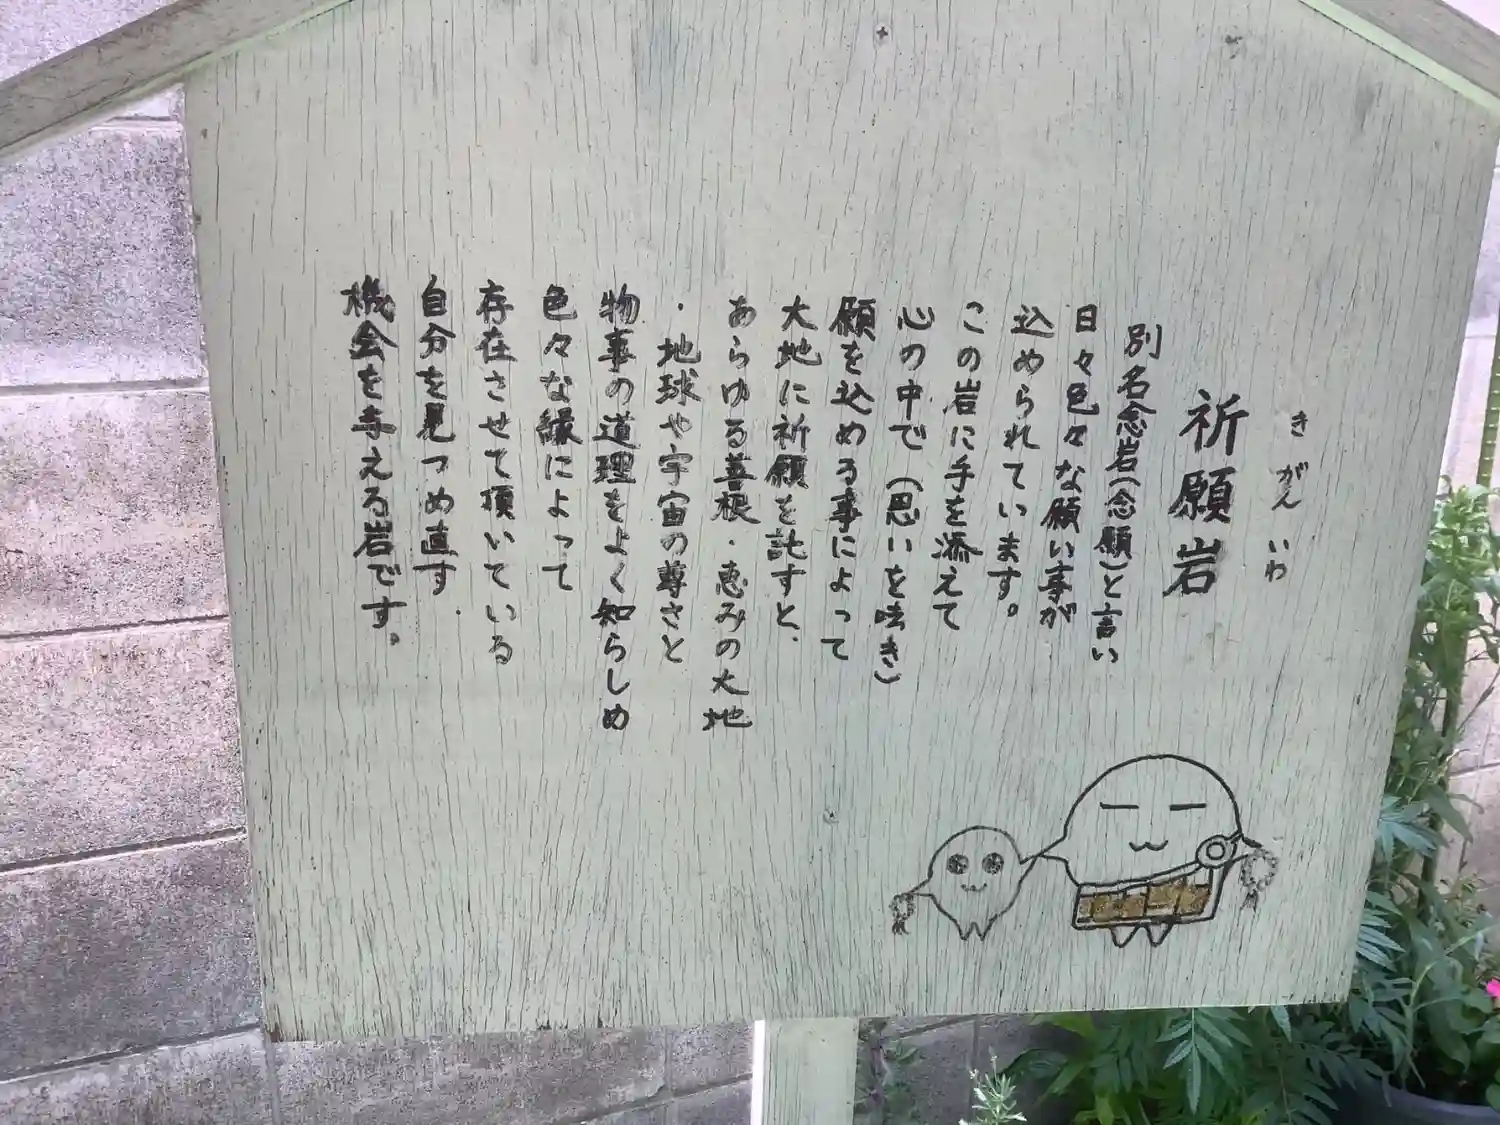 きがんいわ
祈願岩
別名念岩(念願)と言い
日々色々な願い事が
込められています。
この岩に手を添えて
心の中で(思いを呟き)
願を込める事によって
大地に祈願を託すと、
あらゆる善根・恵みの大地
・地球や宇宙の尊さと
物事の道理をよく知らしめ
色々な縁によって
存在させて頂いている
自分を見つめ直す
機会を与える岩です。